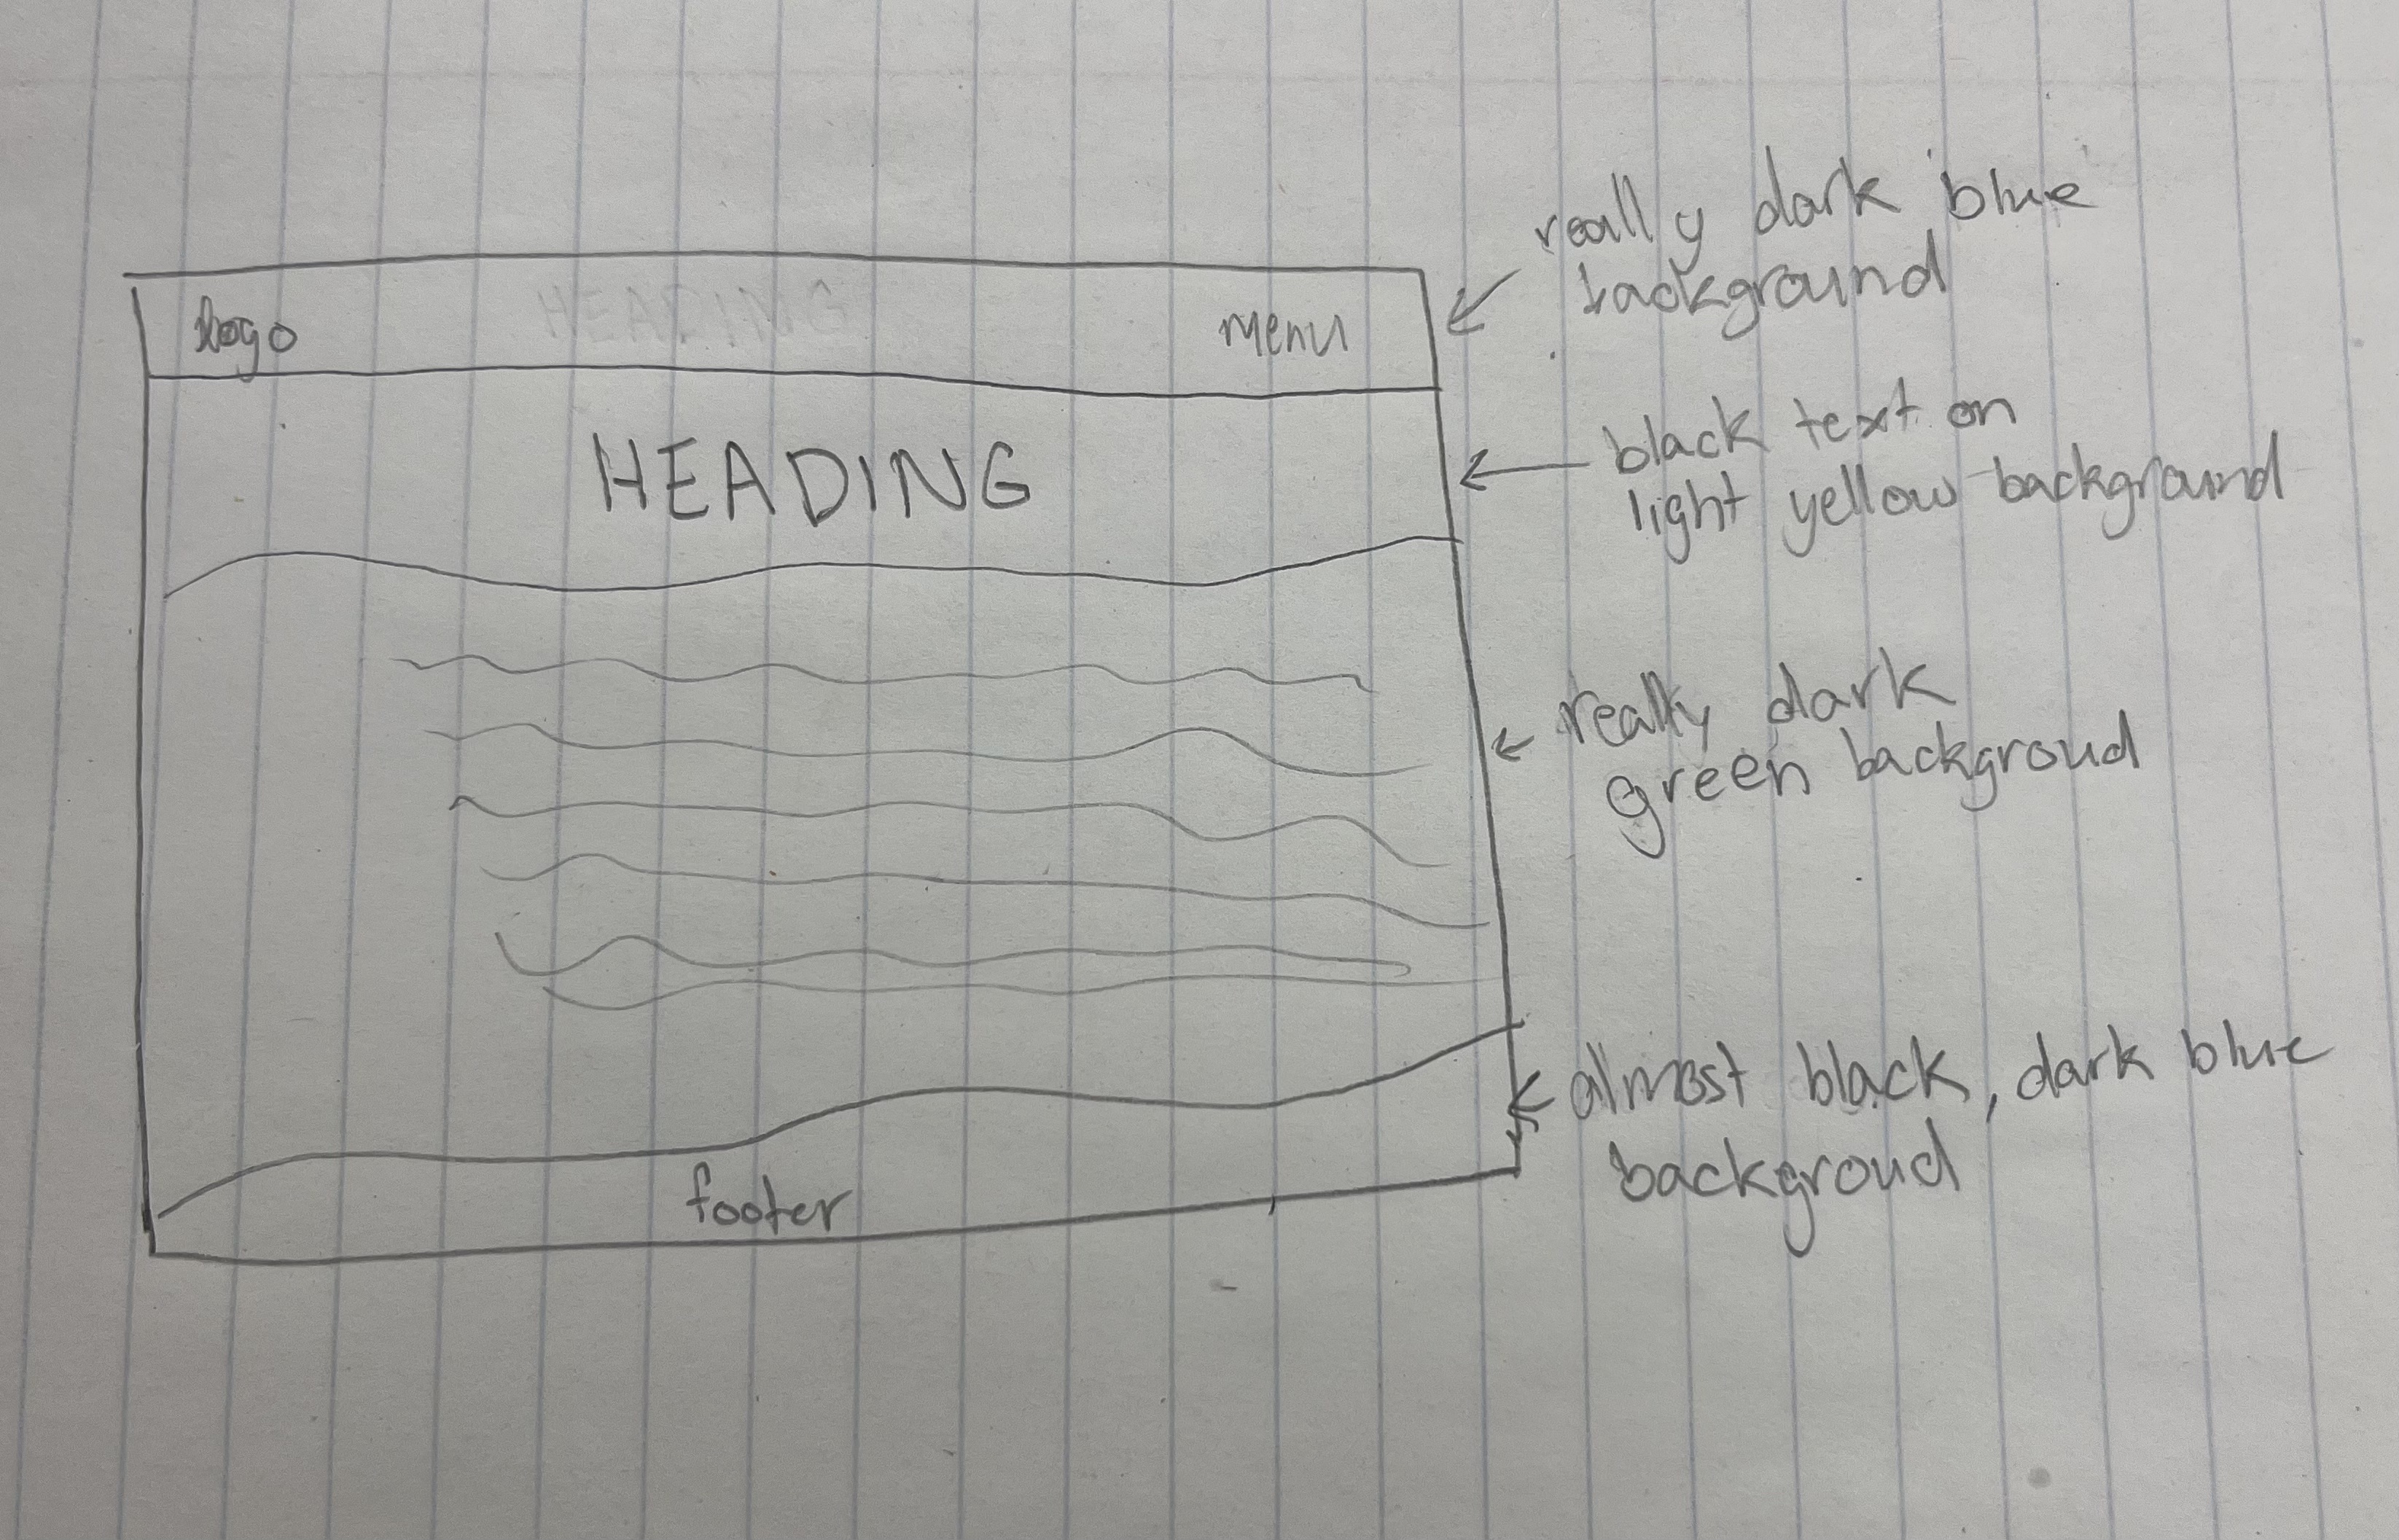 logo
HEADING
menu
HEADING
footer
really dark blue
background
black text on
light yellow background
really dark
green backgroud
almost black, dark blue
backgroud